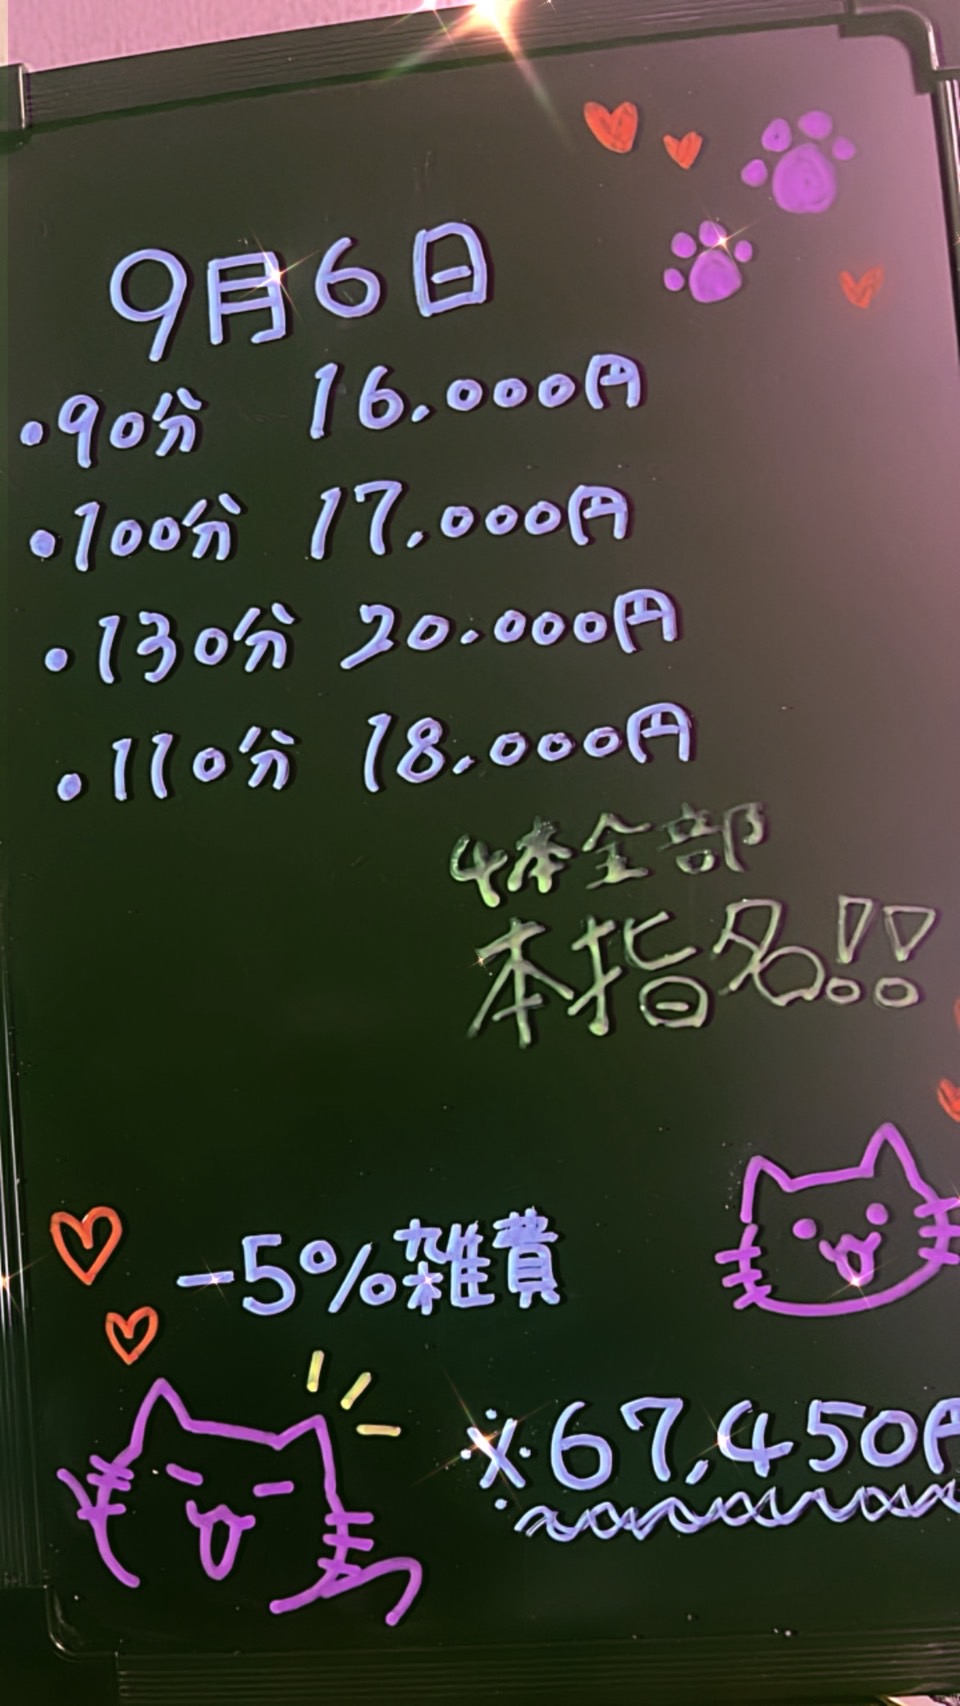 9月6日
・90分 16,000円
・100分 17,000円
・130分 20.000円
・110分 18,000円
4本全部
本指名!!
-5%雑費
※67,450円